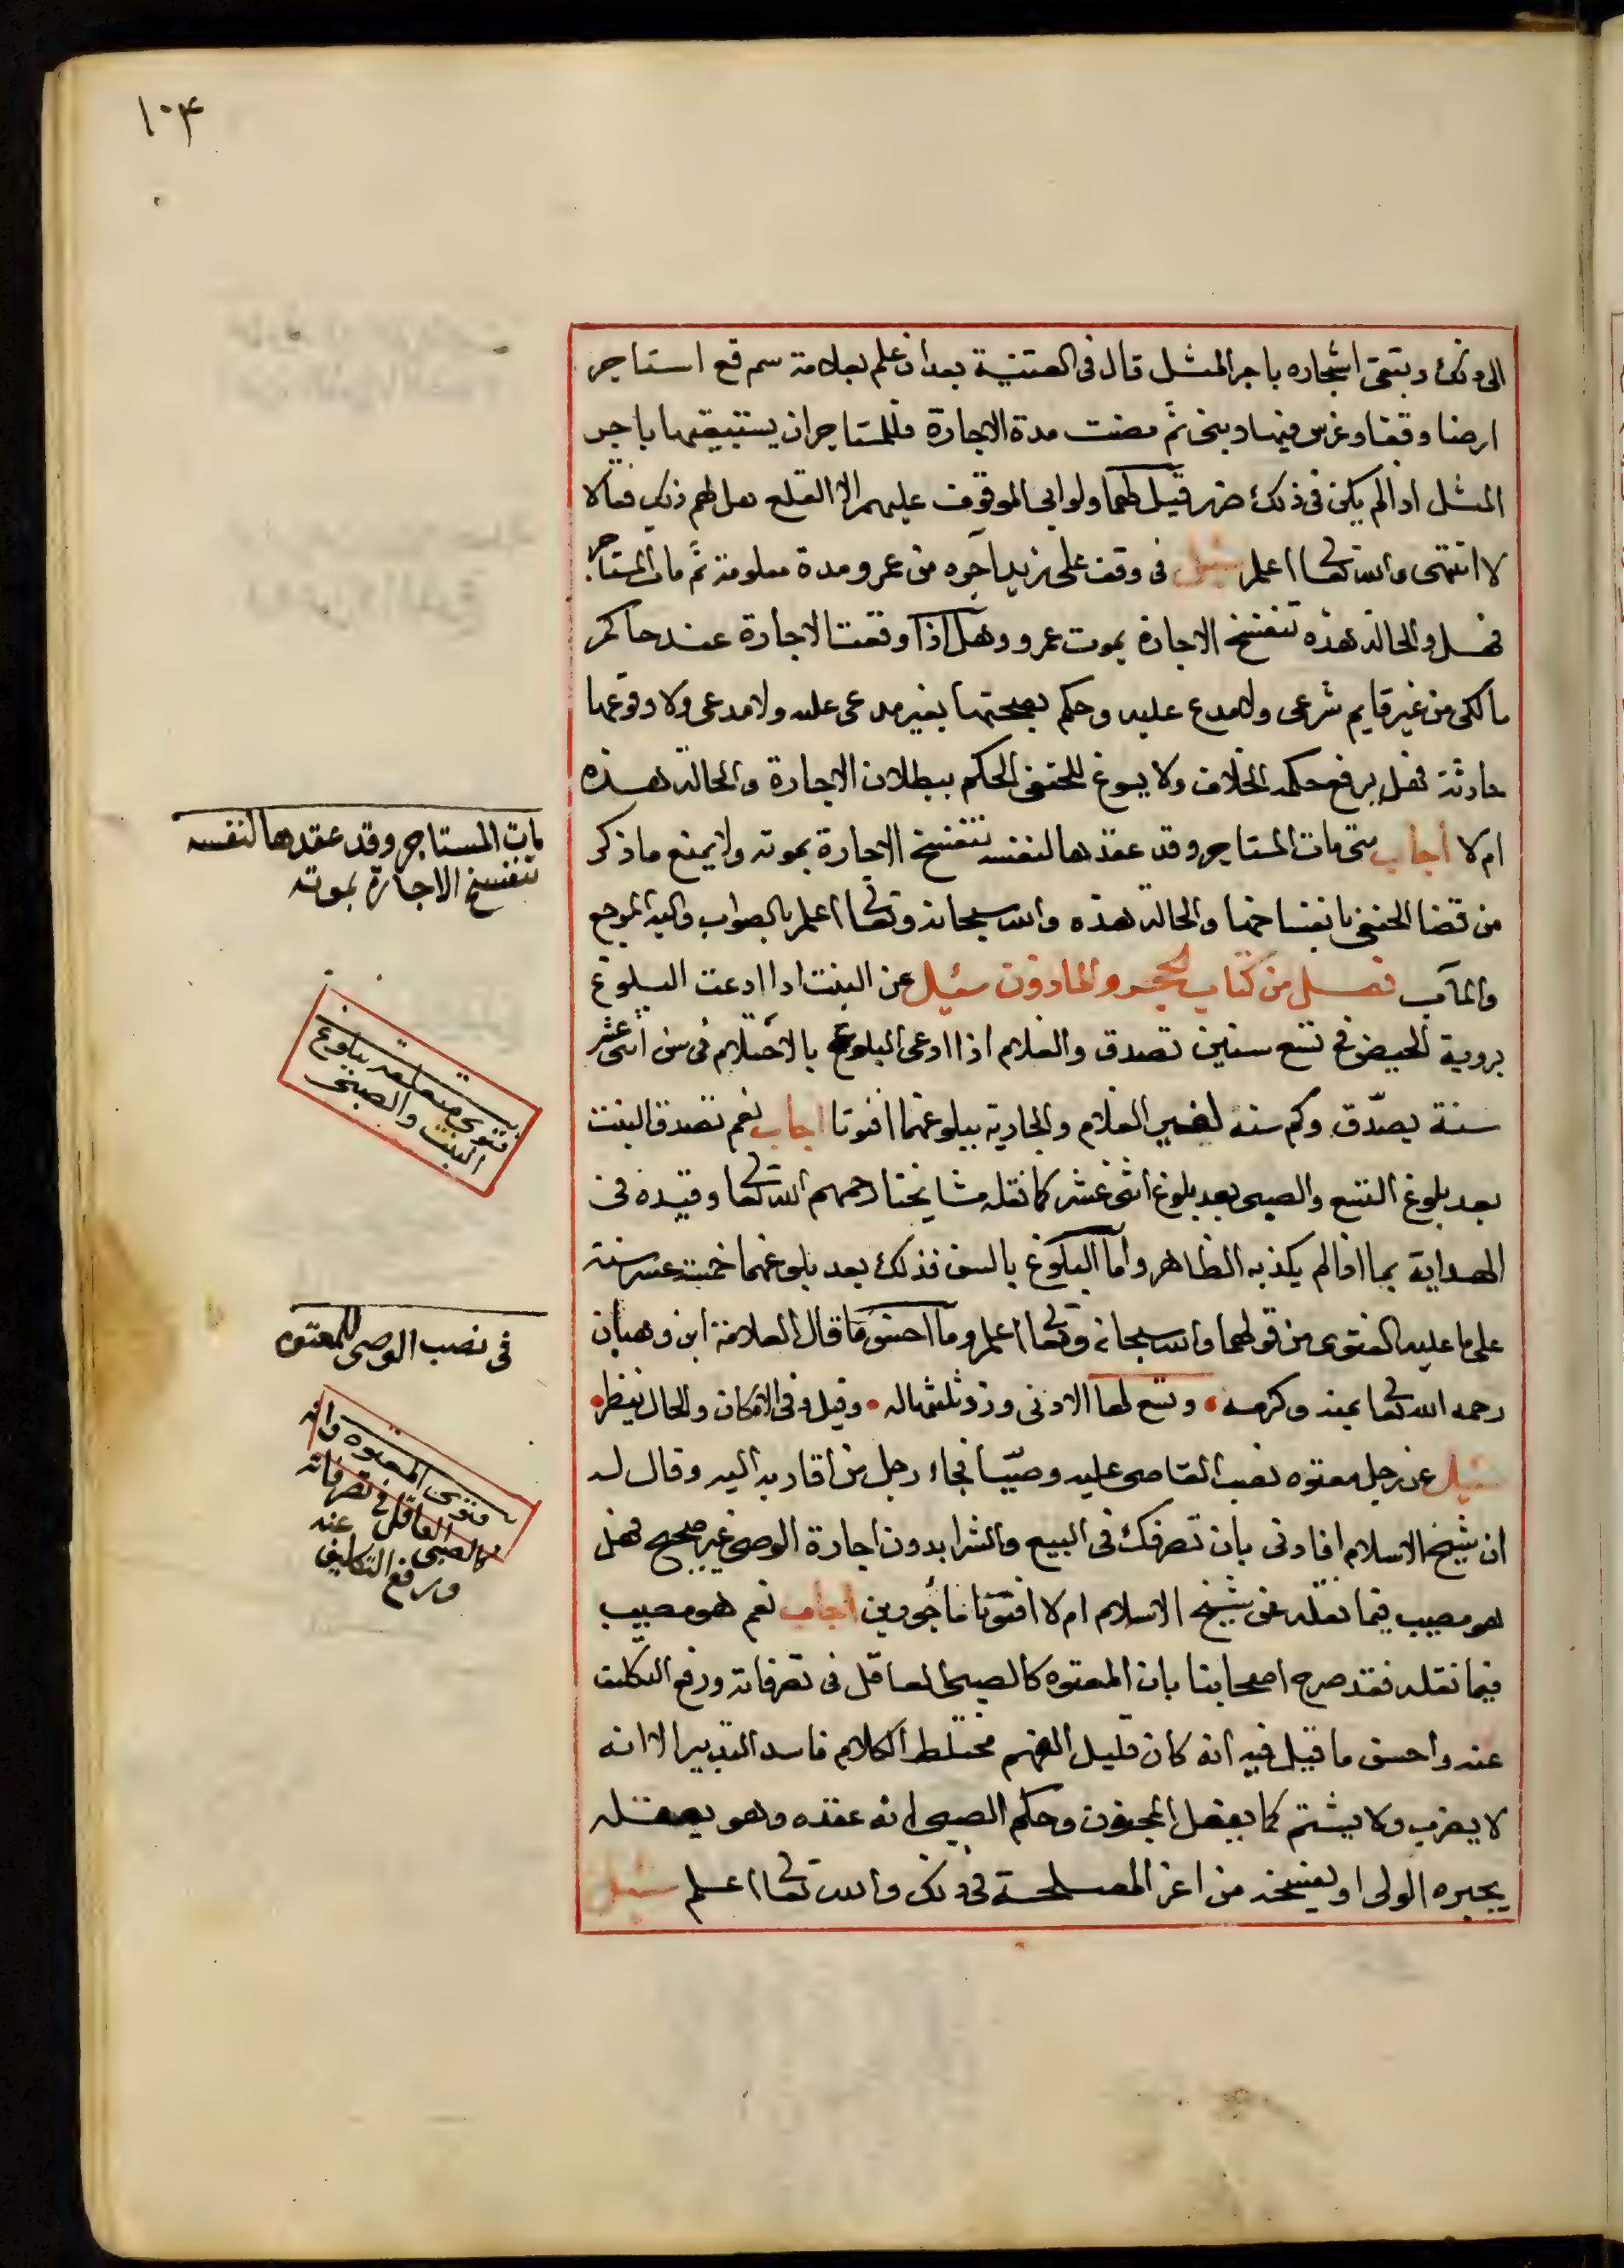 ١٠٤
الى ذلك وتبقى اشجاره باجر المثل قال فى القنية بعد ان علم بعلامة سم قع استاجر
ارضا وقفا وغرس فيها وبنى ثم مضت مدة الاجارة فللمستاجر ان يستبقيها باجر
المثل اذا لم يكن فى ذلك ضرر قيل لهما ولو ابى الموقوف عليهم الا القلع هل لهم ذلك فقالا
لا انتهى والله تعالى اعلم سئيل فى وقف على زيد آجره من عمرو مدة معلومة ثم مات المستاجر
فهل والحالة هذه تنفسخ الاجارة بموت عمرو وهل اذا وقعت الاجارة عند حاكم
مالكى من غير قايم شرعى ولا مدع عليه وحكم بصحتها بغير مدعى عليه ولا مدعى ولا وقوعها
حادثة فهل يرفع حكمه الخلاف ولا يسوغ للحنفى الحكم ببطلان الاجارة والحالة هذه
ام لا أجاب متى مات المستاجر وقد عقدها لنفسه تنفسخ الاجارة بموته ولا يمنع ما ذكر
من قضا الحنفى بانفساخها والحالة هذه والله سبحانه وتعالى اعلم بالصواب واليه المرجع
والمآب فصل من كتاب الحجر والماذون سئيل عن البنت اذا ادعت البلوغ
بروية الحيض فى تسع سنين تصدق والغلام اذا ادعى البلوغ بالاحتلام فى سن اثنى عشر
سنة يصدّق وكم سنه لغير الغلام والجارية ببلوغهما افتونا اجاب نعم تصدق البنت
بعد بلوغ التسع والصبى بعد بلوغ اثنى عشر كما نقله مشايخنا رحمهم الله تعالى وقيده فى
الهداية بما اذا لم يكذبه الظاهر وأما البلوغ بالسن فذلك بعد بلوغهما خمسة عشر سنة
على ما عليه الفتوى من قولهما والله سبحانه وتعالى اعلم وما احسن ما قال العلامة ابن وهبان
رحمه الله تعالى بمنه وكرمه • وتسع لها الادنى وزد ثلثها له • وقيل وفى الامكان والحال ينظر •
سئيل عن رجل معتوه نصب القاضى عليه وصيّا فجاء رجل من اقاربه اليه وقال له
ان شيخ الاسلام افادنى بان تصرفك فى البيع والشرا بدون اجازة الوصى غير صحيح فهل
هو مصيب فيما نقله عن شيخ الاسلام ام لا افتونا مأجورين أجاب نعم هو مصيب
فيما نقله فقد صرح اصحابنا بان المعتوه كالصبى العاقل فى تصرفاته ورفع التكليف
عنه واحسن ما قيل فيه انه كان قليل الفهم مختلط الكلام فاسد التدبير الا انه
لا يضرب ولا يشتم كما يفعل المجنون وحكم الصبى انه عقده وهو يعقله
يجيزه الولى او يفسخه من اغز المصلحة فى ذلك والله تعالى اعلم سئيل
مات المستاجر وقد عقدها لنفسه
تنفسخ الاجارة بموته
فتوى متعلقه ببلوغ
البنت والصبى
فى نصب الوصى للمعتوه
فتوى المعتوه وانه
كالصبى العاقل فى تصرفاته
ورفع التكليف عنه